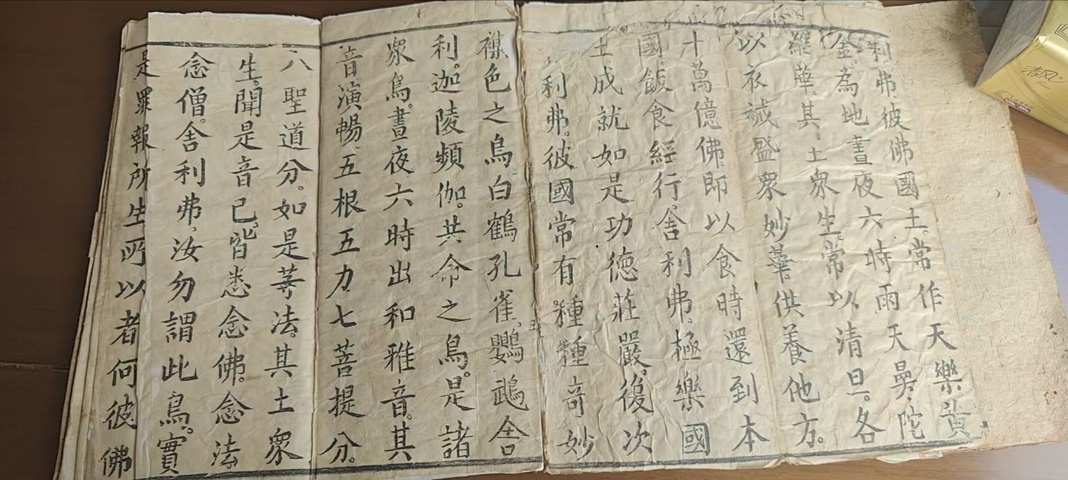 利弗彼佛國土。常作天樂黃
金為地晝夜六時雨天曼陀
羅華。其土衆生常以清旦。各
以衣裓盛衆妙華供養他方。
十萬億佛即以食時還到本
國飯食經行舍利弗。極樂國
土成就如是功德莊嚴。復次
利弗。彼國常有種種奇妙
襍色之鳥白鶴孔雀。鸚鵡舍
利。迦陵頻伽。共命之鳥。是諸
衆鳥。晝夜六時出和雅音。其
音演暢五根五力七菩提分。
八聖道分。如是等法。其土衆
生。聞是音已。皆悉念佛。念法
念僧。舍利弗。汝勿謂此鳥。實
是罪報所生所以者何彼佛
清风